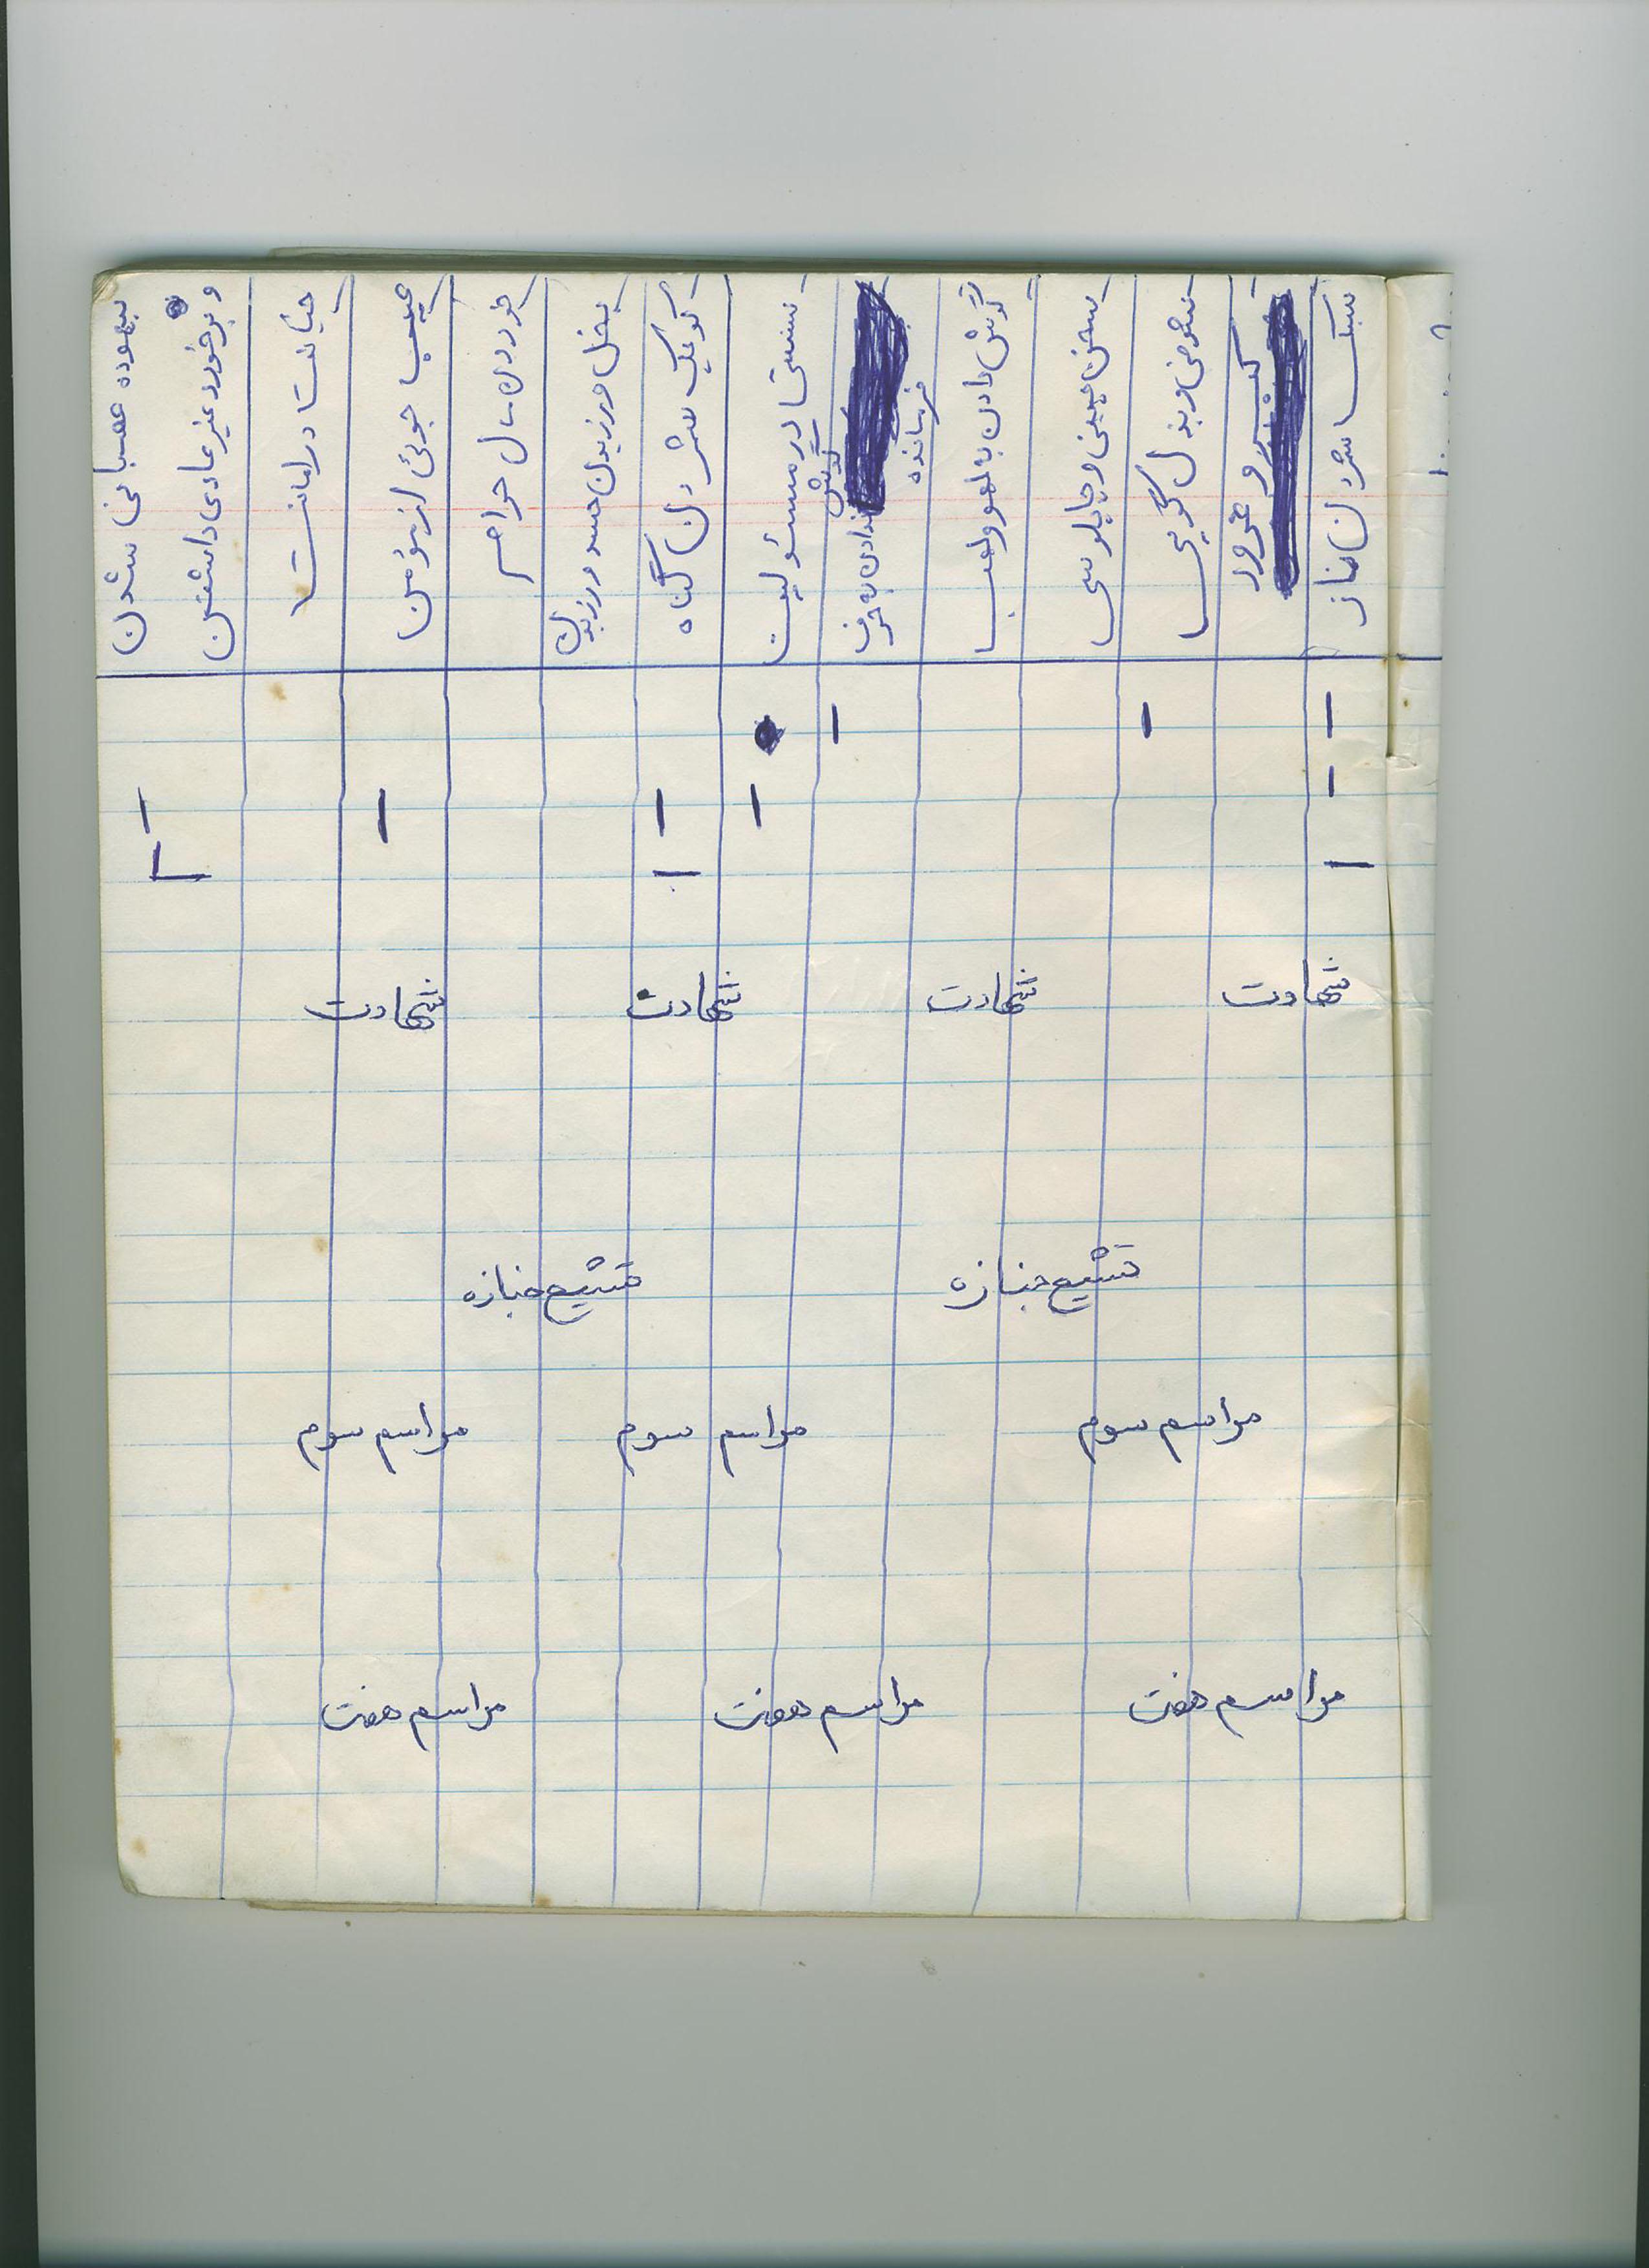 سبک شمردن نماز
کبر و غرور
شوخی و بذل گویی
سخن چینی و چاپلوسی
گوش دادن به لهو و لعب
گوش ندادن به حرف فرمانده
سستی در مسئولیت
کوچک شمردن گناه
بخل ورزیدن حسد ورزیدن
خوردن مال حرام
عیب جوئی از مؤمن
خیانت در امانت
بیهوده عصبانی شدن
و برخورد غیر عادی داشتن
شهادت شهادت شهادت شهادت
تشیع جنازه تشیع جنازه
مراسم سوم مراسم سوم مراسم سوم
مراسم هفت مراسم هفت مراسم هفت